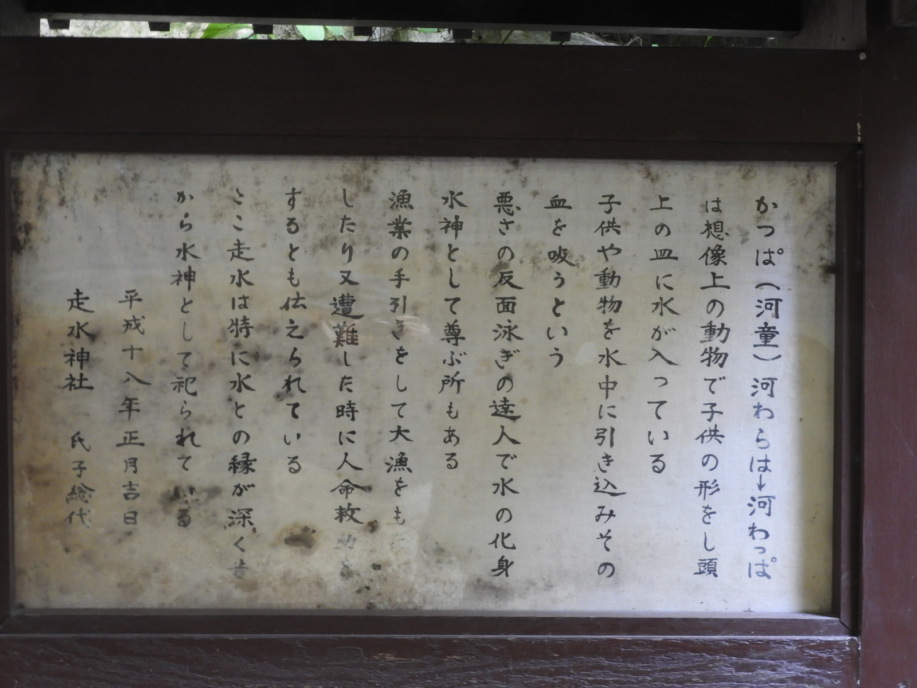 かっぱ(河童)河わらは→河わっぱ
は想像上の動物で子供の形をし頭
上の皿に水が入っている
子供や動物を水中に引き込みその
血を吸うという
悪さの反面泳ぎの達人で水の化身
水神として尊ぶ所もある
漁業の手引きをして大漁をも
したり又遭難した時に人命救助を
するとも伝えられている
ここ走水は特に水との縁が深く古
から水神として祀られている
平成十八年正月吉日
走水神社 氏子総代